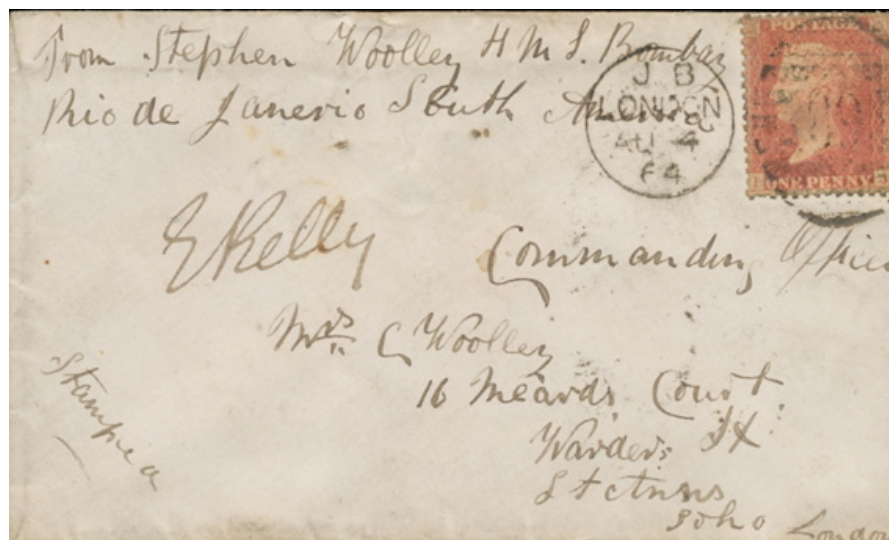 From Stephen Woolley H M S. Bombay
Rio de Janerio South America
J B
LONDON
AU 4
64
POSTAGE
ONE PENNY
E Kelly Commanding Officer
Mrs C Woolley
16 Meards Court
Warders St
St Anns
Soho London
Stamped